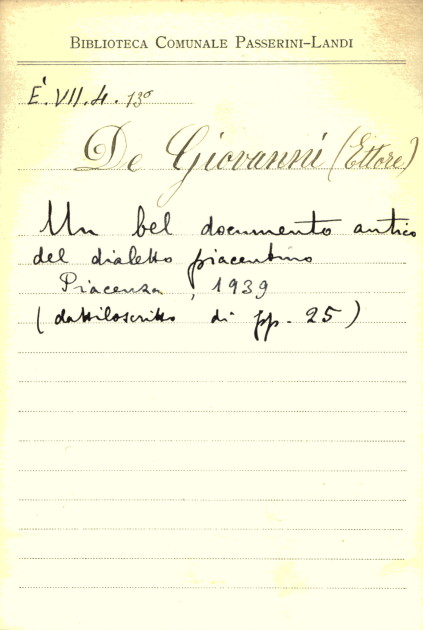 BIBLIOTECA COMUNALE PASSERINI-LANDI
É. VII. 4. 13º
De Giovanni (Ettore)
Un bel documento antico
del dialetto piacentino
Piacenza, 1939
(dattiloscritto di pp. 25)